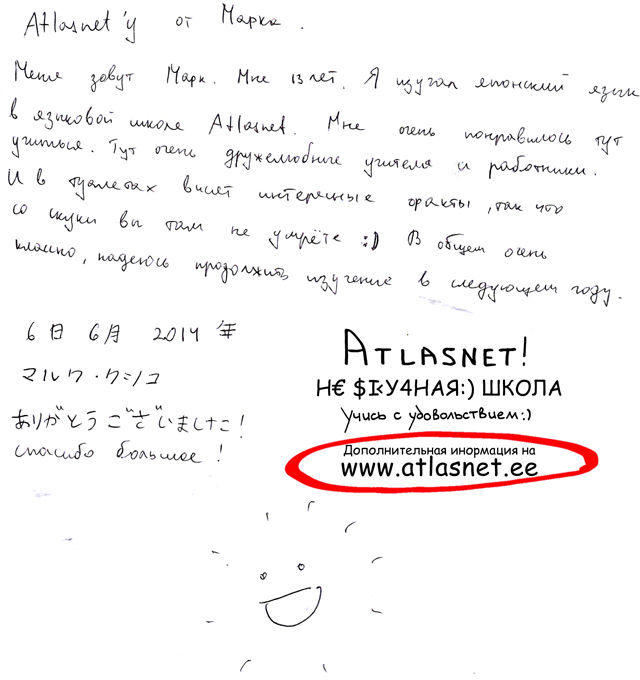 Atlasnet'у от Марка.
Меня зовут Марк. Мне 13 лет. Я изучал японский язык
в языковой школе Atlasnet. Мне очень понравилось тут
учиться. Тут очень дружелюбные учителя и работники.
И в туалетах висят интересные факты, так что
со скуки вы там не умрёте :) В общем очень
классно, надеюсь продолжить изучение в следующем году.
6日 6月 2014 年
マルク・クニノコ
ありがとうございました!
спасибо большое!
ATLASNET!
Н€ $КУ4НАЯ:) ШКОЛА
Учись с удовольствием:)
Дополнительная инормация на
www.atlasnet.ee